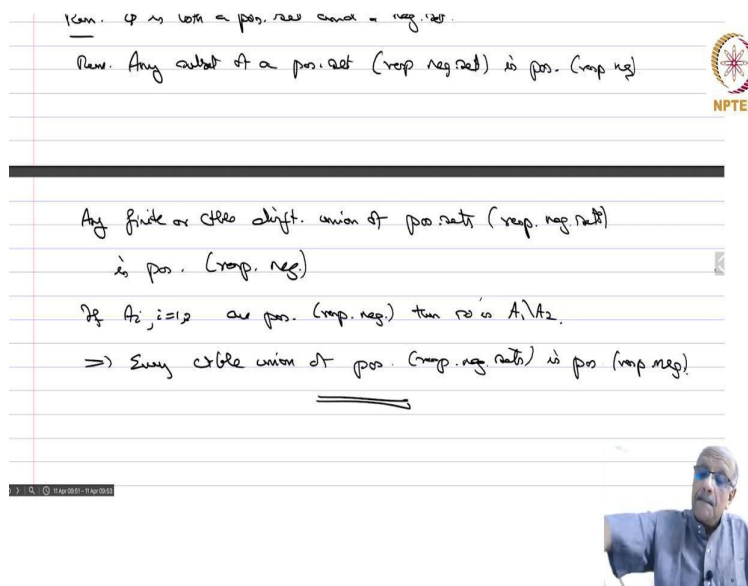 Rem. φ is both a pos. set and a neg. set.
Rem. Any subset of a pos. set (resp neg set) is pos. (resp neg)
NPTE
Any finite or ctble disjt. union of pos sets (resp. neg. sets)
is pos. (resp. neg.)
If Ai, i=1,2 are pos. (resp. neg.) then so is A1\A2.
=> Every ctble union of pos. (resp. neg. sets) is pos (resp neg).
11 Apr 09:51 - 11 Apr 09:53